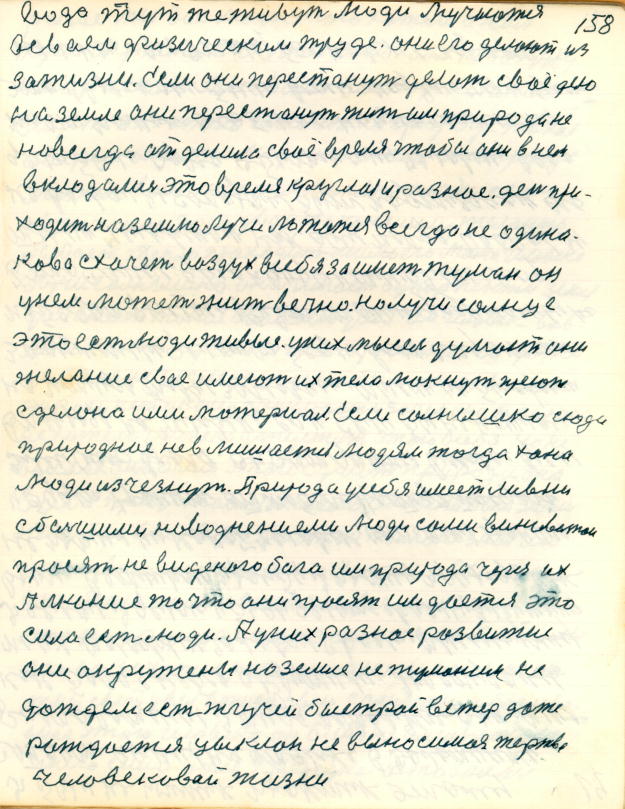 158
вода тут же живут люди мучаются
всваем физическим труде. они его делают из
за жизни. Если они перестанут делат своё дело
на земле они перестанут жит им природа не
навсегда отделила своё время чтобы они в нем
вкладалис это время круглаи разное. ден при-
ходит на землю лучи ложатся всегда не одина-
кова схочет воздух всебя заимет туман он
унем может жит вечно. Но лучи солнце
это ест люди живые. уних мысел думают они
желание свае имеют их тело мокнут
сделона ими материал. Если солнышко сюда
природное не вмишается людям тогда хана
люди изчезнут. Природа усебя имеет ливни
сбалшими новоднениеми люди сами виноватаи
просят не виденого бага им природа через их
Алкание то что они просят им дается это
сила ест люди. А уних разнае развитие
они акружены на земле не туманим не
дождем ест жгучей быстрай ветер даже
рождается цыклон не выносимая жертва
человековай жизни